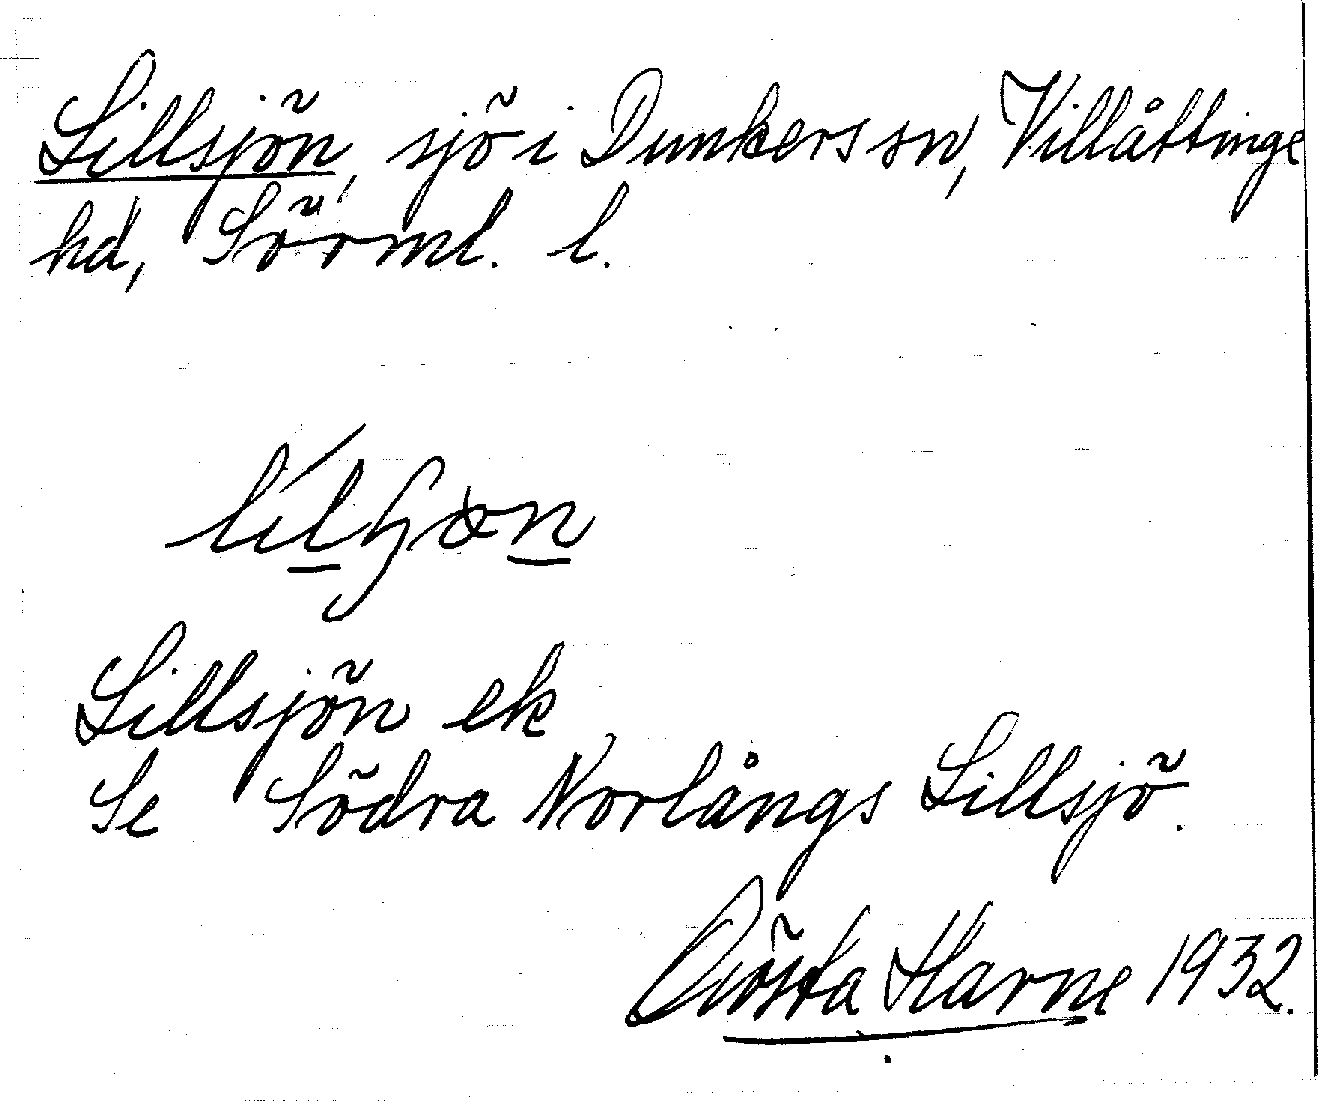 Lillsjön, sjö i Dunkers sn, Villåttinge
hd, Sörml. l.
Lillsjön ek
Se Södra Norlångs Lillsjö.
Gösta Harne 1932.